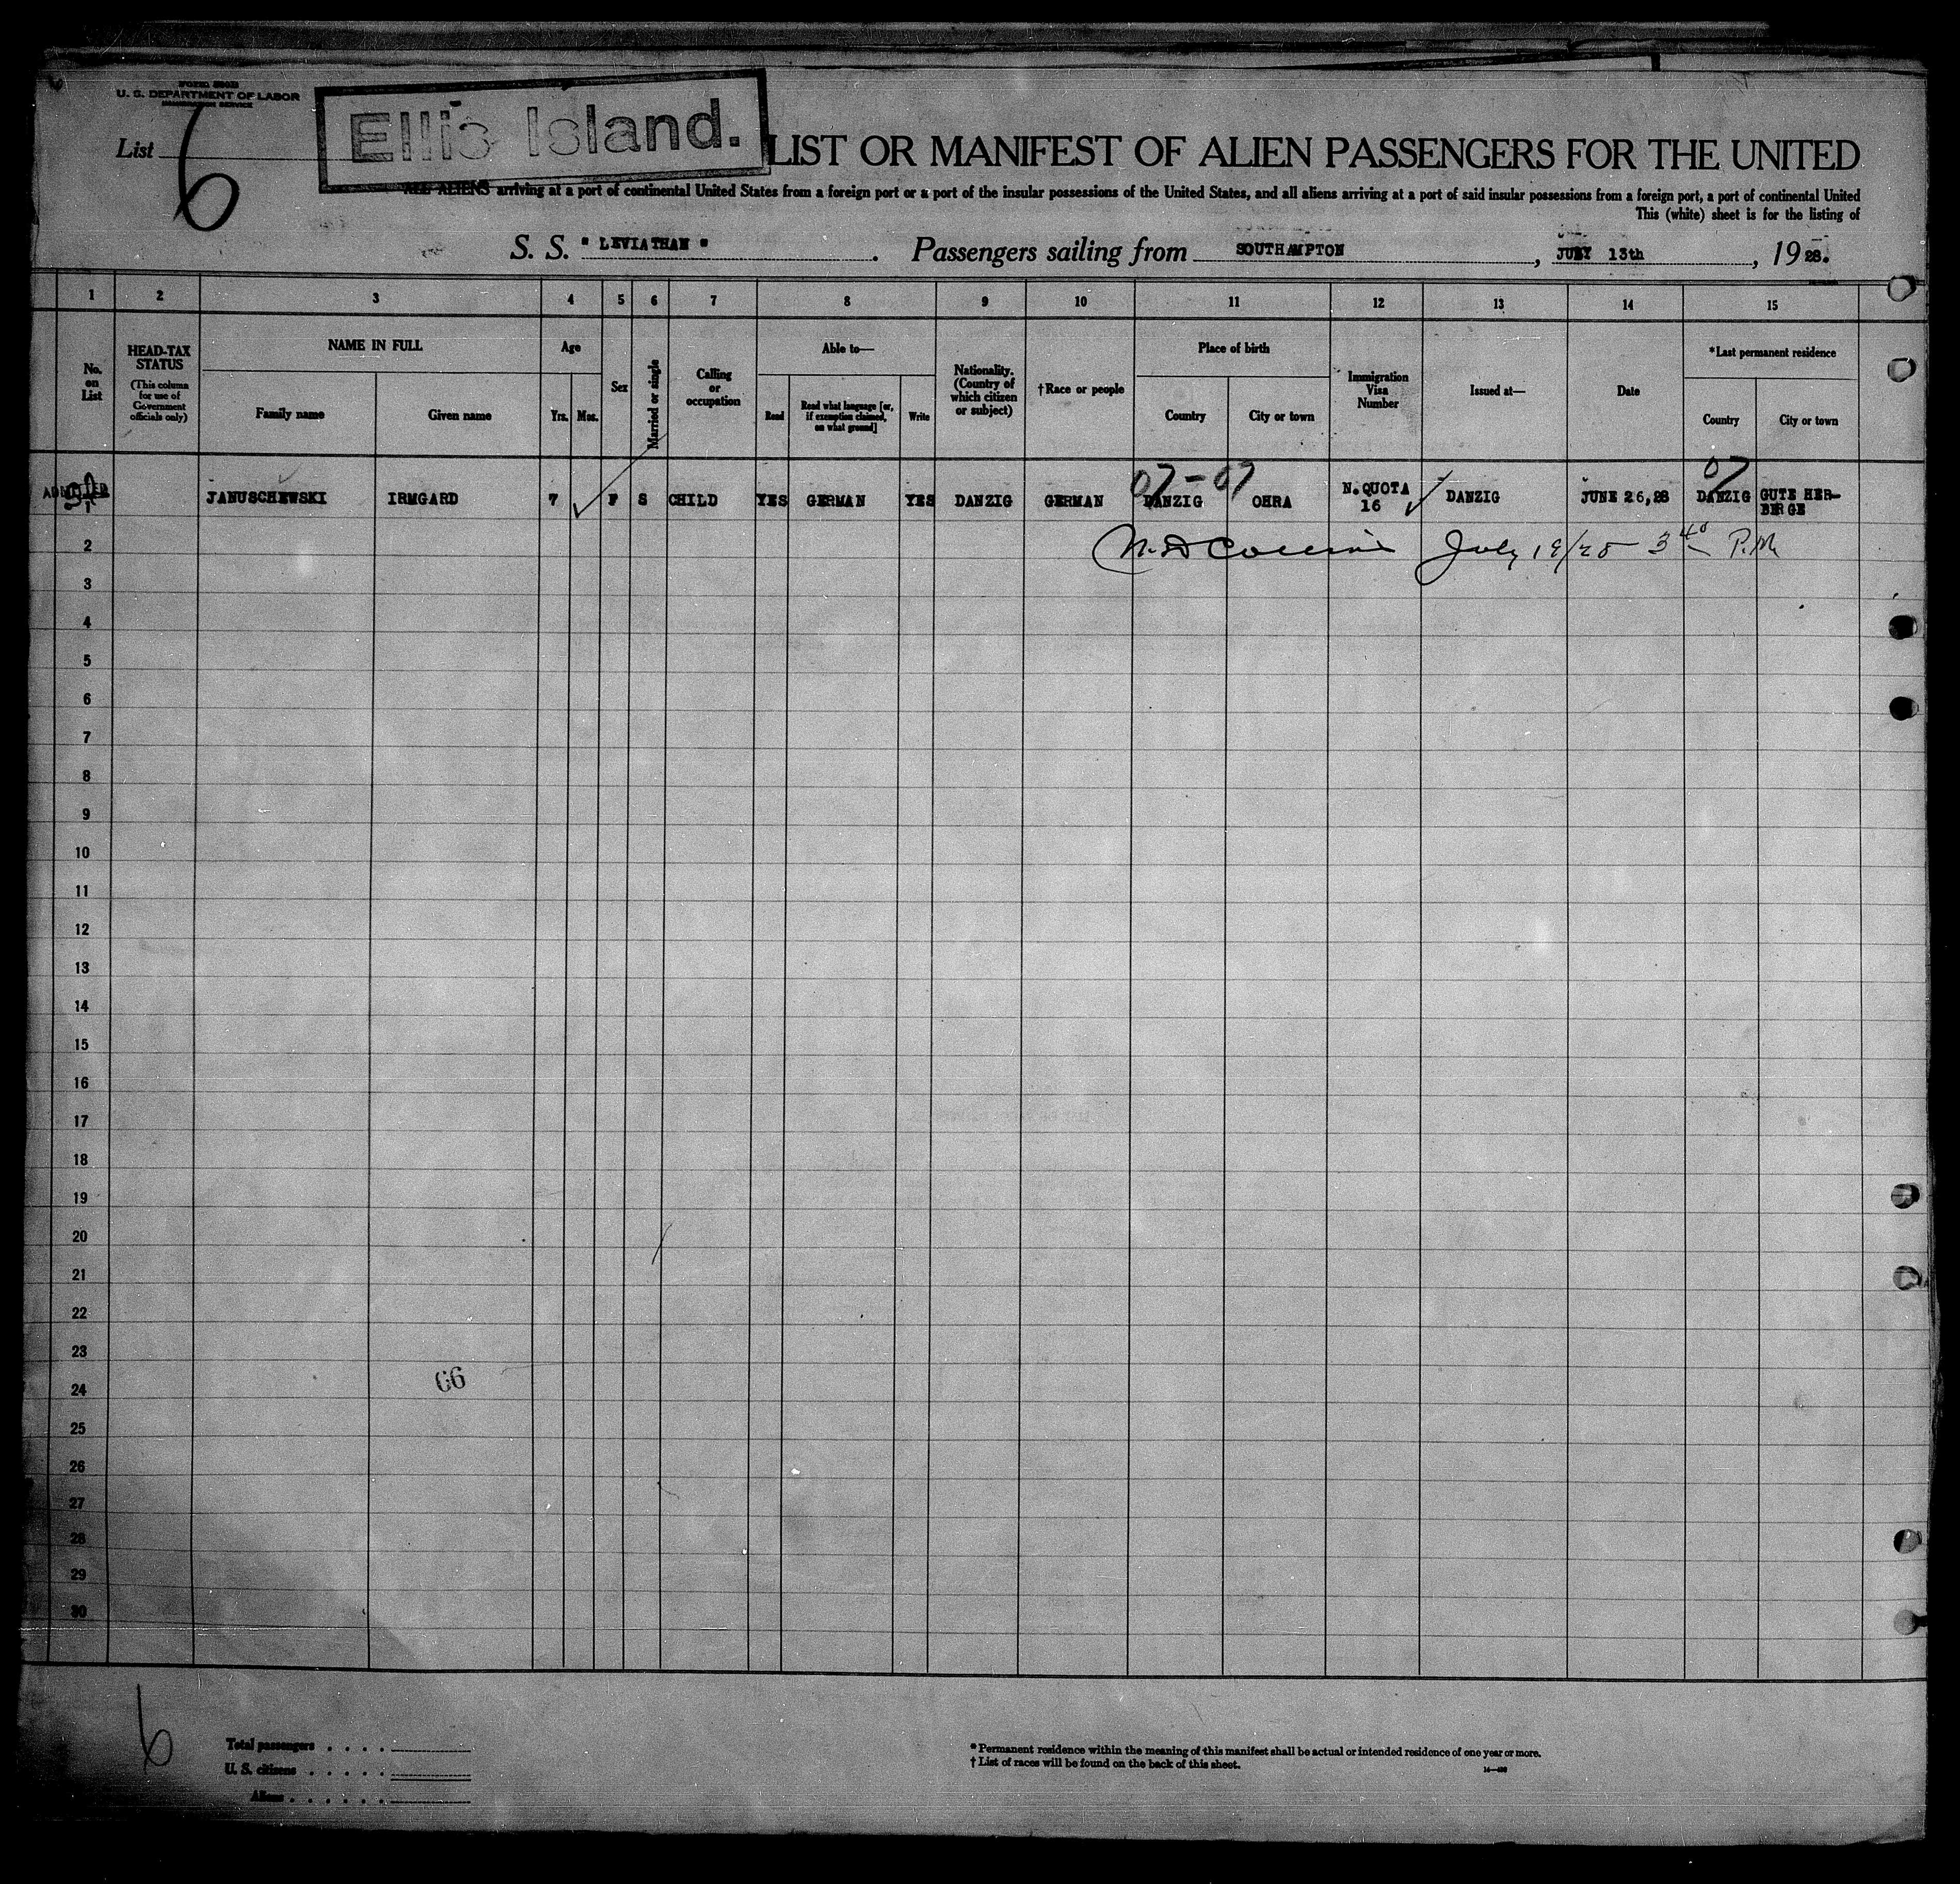 U. S. DEPARTMENT OF LABOR
List 6
Ellis Island.
LIST OR MANIFEST OF ALIEN PASSENGERS FOR THE UNITED
ALL ALIENS arriving at a port of continental United States from a foreign port or a port of the insular possessions of the United States, and all aliens arriving at a port of said insular possessions from a foreign port, a port of continental United
This (white) sheet is for the listing of
S. S. " LEVIATHAN " . Passengers sailing from SOUTHAMPTON , JULY 13th , 1928.
1 2 3 4 5 6 7 8 9 10 11 12 13 14 15
No. on List
HEAD-TAX STATUS (This column for use of Government officials only)
NAME IN FULL
Family name
Given name
Age
Yrs. Mos.
Sex
Married or single
Calling or occupation
Able to—
Read
Read what language [or, if exemption claimed, on what ground]
Write
Nationality. (Country of which citizen or subject)
†Race or people
Place of birth
Country
City or town
Immigration Visa Number
Issued at—
Date
*Last permanent residence
Country
City or town
07-07 07
ADMITTED
1 JANUSCHEWSKI IRMGARD 7 F S CHILD YES GERMAN YES DANZIG GERMAN DANZIG OHRA N.QUOTA 16 DANZIG JUNE 26,28 DANZIG GUTE HER-
BERGE
2 July 19/28 3 40 P.M
3
4
5
6
7
8
9
10
11
12
13
14
15
16
17
18
19
20
21
22
23
24 66
25
26
27
28
29
30
6
Total passengers . . . .
U. S. citizens . . . . .
Aliens . . . . . .
* Permanent residence within the meaning of this manifest shall be actual or intended residence of one year or more.
† List of races will be found on the back of this sheet.